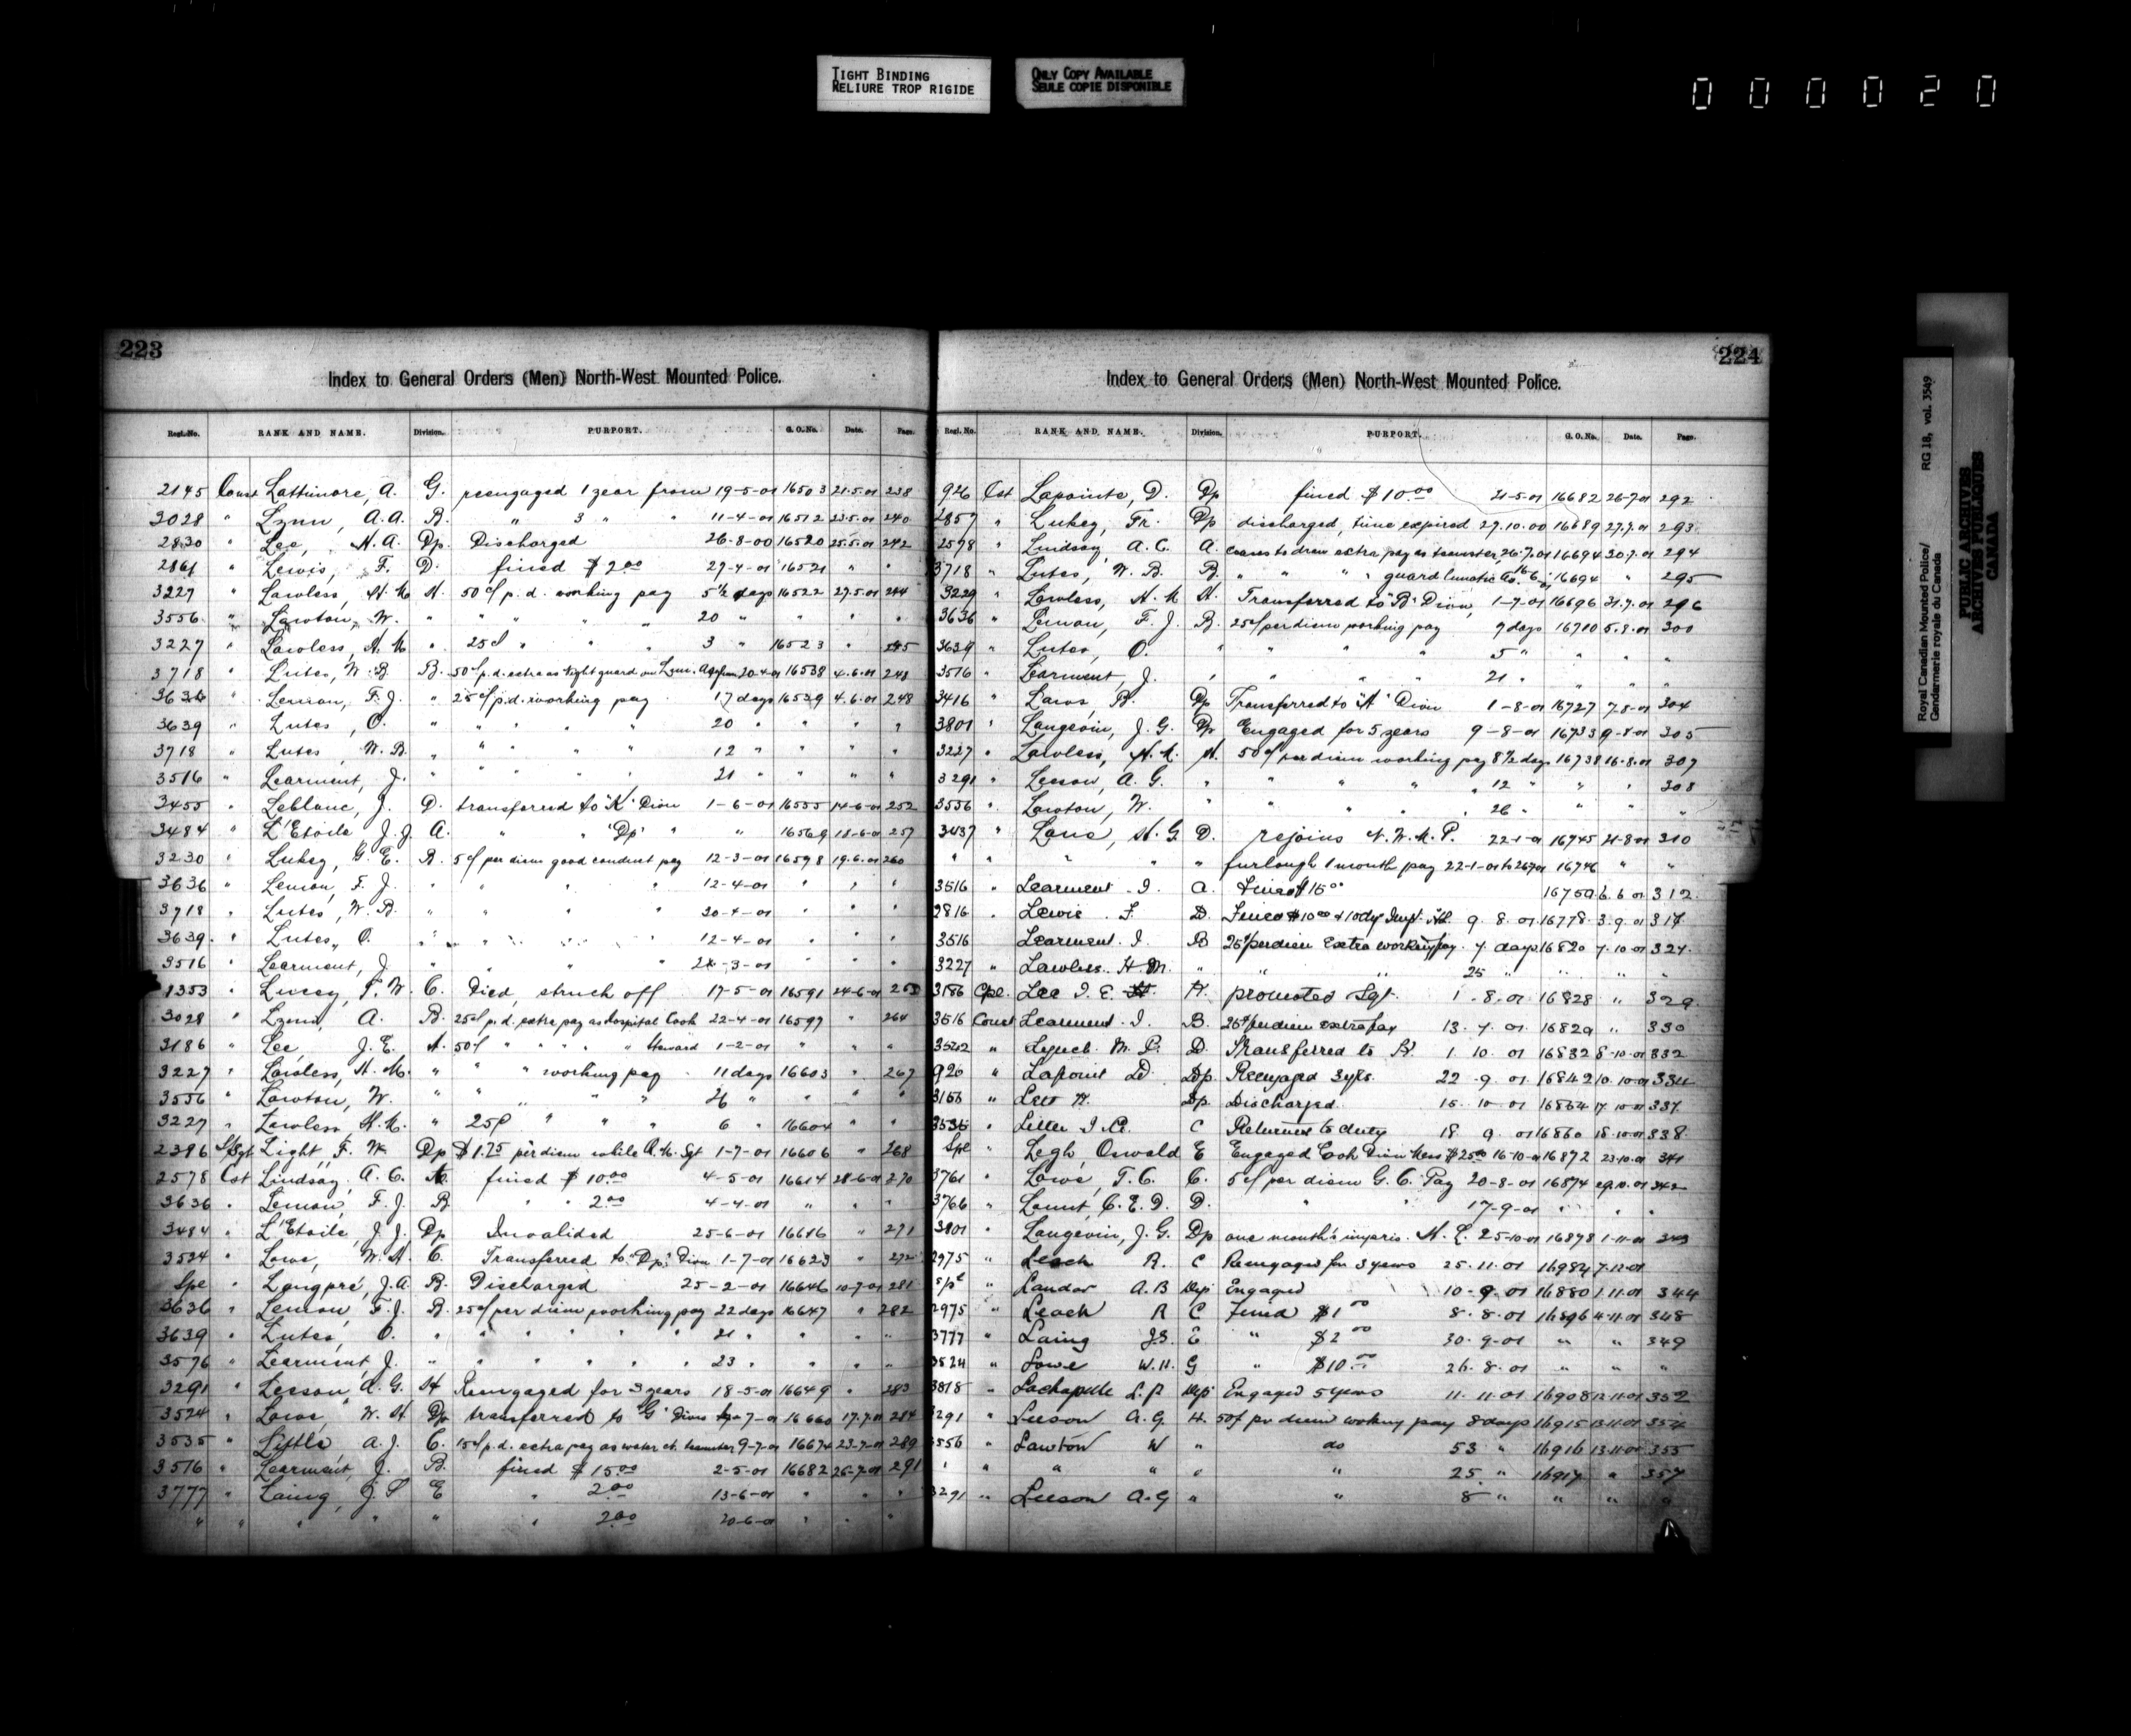 TIGHT BINDING
RELIURE TROP RIGIDE
ONLY COPY AVAILABLE
SEULE COPIE DISPONIBLE
000020
223
Index to General Orders (Men) North-West Mounted Police.
Regl. No. RANK AND NAME. Division. PURPORT. G. O. No. Date. Page.
2145 Const Lattimore, A. G. reengaged 1 year from 19-5-01 16503 21.5.01 238
3028 " Lynn, A.A. B. " 3 " " 11-4-01 16512 23.5.01 240
2830 " Lee, H.A. Dp. Discharged 26-8-00 16520 25.5.01 242
2861 " Lewis, F. D. fined $2.00 27-4-01 16521 " "
3227 " Lawless, H.M. H. 50¢ p.d. working pay 5½ days 16522 27.5.01 244
3556 " Lawton, W. " " " " " 20 " " " "
3227 " Lawless, H.M. " 25¢ " " " 3 " 16523 " 245
3718 " Lutes, W.B. B. 50¢ p.d. extra as night guard on Lun. Asylum 20-4-01 16538 4.6.01 248
3636 " Lemon, F.J. " 25¢ p.d. working pay 17 days 16539 4.6.01 248
3639 " Lutes, O. " " " " 20 " " " "
3718 " Lutes, W.B. " " " " " 12 " " " "
3516 " Learment, J. " " " " " 21 " " " "
3455 " Leblanc, J. D. transferred to "K" Divn 1-6-01 16555 14-6-01 252
3484 " L'Etoile J.J. A. " " "Dp" " " 16569 18-6-01 257
3230 " Lukey, G.E. B. 5¢ per diem good conduct pay 12-3-01 16598 19.6.01 260
3636 " Lemon, F.J. " " " " 12-4-01 " " "
3718 " Lutes, W.B. " " " " 30-4-01 " " "
3639 " Lutes, O. " " " " 12-4-01 " " "
3516 " Learment, J. " " " " -3-01 " " "
1353 " Lucey, F.W. C. Died, struck off 17-5-01 16591 24-6-01 263
3028 " Lynn, A. B. 25¢ p.d. extra pay as hospital Cook 22-4-01 16597 " 264
3186 " Lee, J.E. A. 50¢ " " " " " Steward 1-2-01 " " "
3227 " Lawless, H.M. " " " working pay 11 days 16603 " 267
3556 " Lawton, W. " " " " " 26 " " " "
3227 " Lawless H.M. " 25¢ " " " 6 " 16604 " "
2396 S/Sgt Light, F.W. Dp $1.75 per diem while Q.M. Sgt 1-7-01 16606 " 268
2578 Cst Lindsay, A.C. A. fined $10.00 4-5-01 16614 28-6-01 270
3636 " Lemon, F.J. B " " 2.00 4-4-01 " " "
3484 " L'Etoile, J.J. Dp Invalided 25-6-01 16616 " 271
3524 " Lowe, W.H. C. Transferred to "Dp" Divn 1-7-01 16623 " 272
Spe " Langpré, J.A. B. Discharged 25-2-01 16646 10-7-01 281
3636 " Lemon, F.J. B. 25¢ per diem working pay 22 days 16647 " 282
3639 " Lutes, O. " " " " " " 21 " " " "
3576 " Learment, J. " " " " " " 23 " " " "
3291 " Leeson, A.G. H Reengaged for 3 years 18-5-01 16649 " 283
3524 " Lowe, W.H. Dp transferred to "G" Divn 7-01 16660 17.7.01 284
3535 " Little, A.J. C. 15¢ p.d. extra pay as water ct. teamster 9-7-01 16674 23-7-01 289
3516 " Learment, J. B. fined $15.00 2-5-01 16682 26-7-01 291
3777 " Laing, J.S. E " 2.00 13-6-01 " " "
" " " " " " 2.00 20-6-01 " " "
224
Index to General Orders (Men) North-West Mounted Police.
Regl. No. RANK AND NAME. Division. PURPORT. G. O. No. Date. Page.
926 Cst Lapointe, D. Dp fined $10.00 21-5-01 16682 26-7-01 292
2857 " Lukey, Fr. Dp discharged, time expired 27.10.00 16689 27.7.01 293
2578 " Lindsay A.C. A. ceases to draw extra pay as teamster, 26.7.01 16694 30.7.01 294
3718 " Lutes, W.B. B. " " " " guard lunatic 16694 " 295
3229 " Lawless, H.M. H. Transferred to "B" Divn, 1-7-01 16696 31.7.01 296
3636 " Lemon, F.J. B. 25¢ per diem working pay 9 days 16710 5.8.01 300
3639 " Lutes, O. " " " " 5 " " " "
3516 " Learment, J. " " " " 21 " " " "
3416 " Laws, B. Dp Transferred to "A" Divn 1-8-01 16727 7.8-01 304
3801 " Langevin, J.G. Dp Engaged for 5 years 9-8-01 16733 9-8-01 305
3227 " Lawless, H.M. H. 50¢ per diem working pay 8½ days 16738 16.8.01 307
3291 " Leeson, A.G. " " " " " 12 " " " 308
3556 " Lawton, W. " " " " 26 " " "
3437 " Lane, H.G. D. rejoins N.W.M.P. 22-1-01 16745 21-8-01 310
" " " " " furlough 1 month pay 22-1-01 to 16746 " "
3516 " Learment J. a. Fined $15.00 16759 6.6.01 312.
2816 " Lewis F. D. Fined $10.00 & 10 dys Impt. 9.8.01 16778 3.9.01 317
3516 Learment. J. B 25¢ per diem Extra working pay. 7 days 16820 7.10.01 327.
3227 " Lawless. H.M. " " " 25 " " " "
3186 Cpl. Lee J.E. H. promoted Sgt. 1.8.01 16828 " 329.
3516 Const Learment. J. B. 25¢ per diem extra pay 13.7.01. 16829 " 330
3522 " Lynch. M.P. D. Transferred to 1.10.01 16832 8-10-01 332
920 " Lapoint D. Dp. Reengaged 3 yrs. 22.9.01. 16842 10.10.01 334
3156 " Lee H. Dp. Discharged. 15.10.01 16864 17.10.01 337.
3535 " C Returned to duty 18.9.01 16860 18.10.01 338.
Spe " Legh, Oswald E Engaged Cook Divn Mess $25.00 16-10-01 16872 23.10.01 341
3761 " Lowe, T.C. C. 5¢ per diem G.C. Pay 20-8-01 16874 29.10.01 342
3766 " Lount, C.E.D. D. " " 17-9-01 " " "
3801 " Langevin, J.G. Dp one month's impris. H.L. 25-10-01 16878 1-11-01 343
2975 " Leach R. C Reengaged for 3 years 25.11.01 16984 7.12.01
Spl " Landor A.B Dep Engaged 10-9-01 16880 1.11.01 344
2975 " Leach R C Fined $1.00 8.8.01 16896 4.11.01 348
3777 " Laing J.S. E " $2.00 30.9.01 " " 349
3524 " Lowe W.H. G " $10.00 26.8.01 " " "
3818 " Lachapelle L.P. Dep Engaged 5 years 11.11.01 16908 12.11.01 352
3291 " Leeson A.G H. 50¢ per diem working pay 8 days 16915 13.11.01 354
3556 " Lawton W " do 53 " 16916 13.11.01 355
" " " " " " 25 " 16917 " 357
3291 " Leeson A.G " " 8 " " " "
Royal Canadian Mounted Police/
Gendarmerie royale du Canada
RG 18, vol. 3549
PUBLIC ARCHIVES
ARCHIVES PUBLIQUES
CANADA